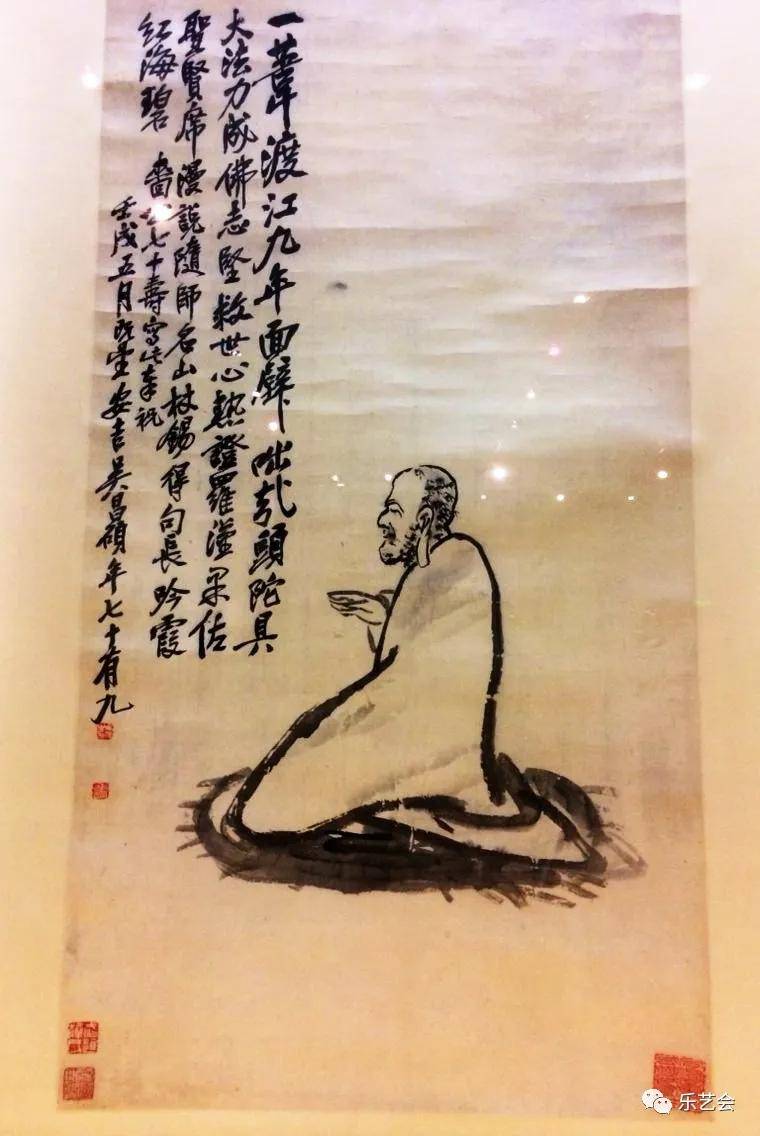 一葦渡江九年面壁咄哉頭陀具
大法力成佛志堅救世心熱證羅漢果佐
聖賢席漫說隨師名山杖錫得句長吟霞
紅海碧 嗇公七十壽寫此奉祝
壬戌五月既望安吉吳昌碩年七十有九
乐艺会